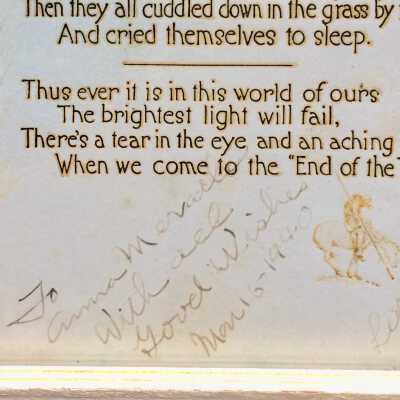 Then they all cuddled down in the grass by
And cried themselves to sleep.
Thus ever it is in this world of ours
The brightest light will fail,
There's a tear in the eye and an aching
When we come to the "End of the
To
Anna
With all
Good Wishes
Mar 16-1940